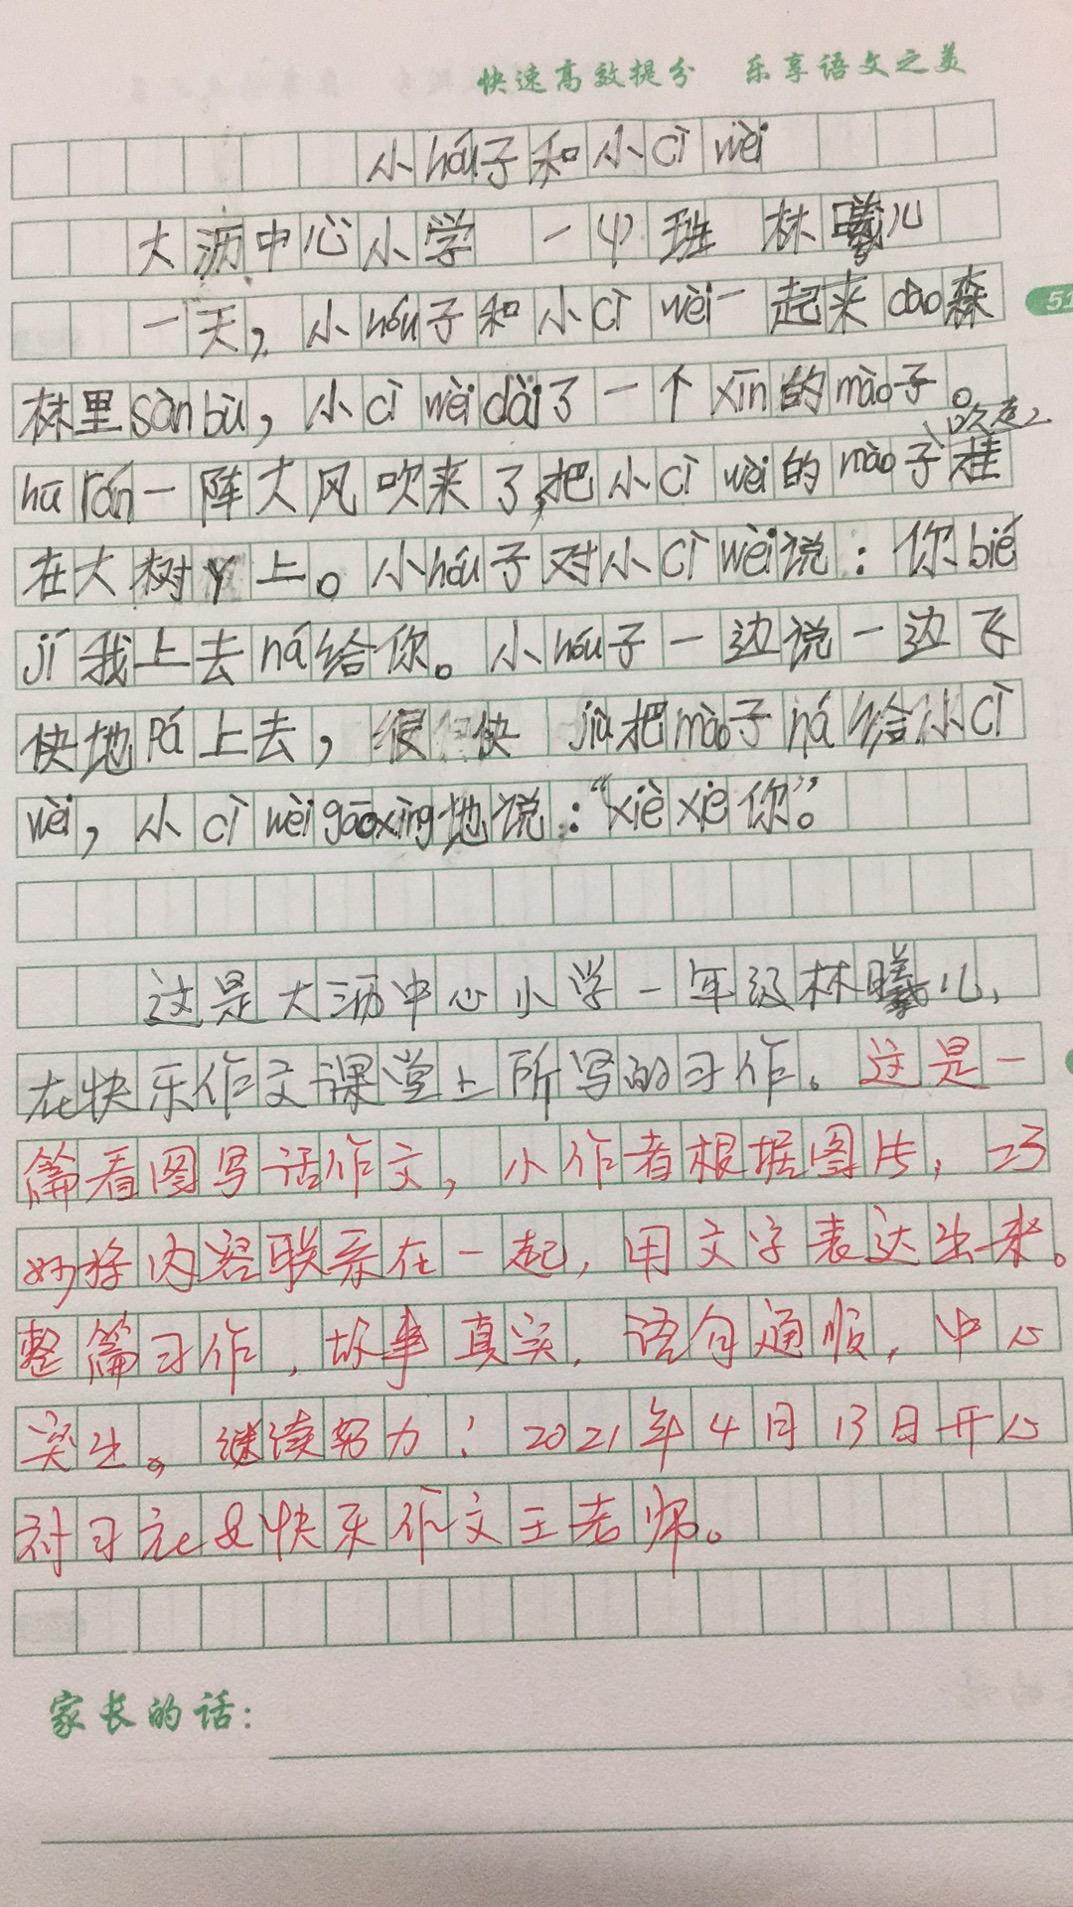 快速高效提分 乐享语文之美
小hóu子和小cì wèi
大沥中心小学 一(4)班 林曦儿
一天，小hóu子和小cì wèi一起来dào森
51
林里sàn bù，小cì wèi dài了一个xīn的mào子。
吹走
hū rán一阵大风吹来了，把小cì wèi的mào子挂
在大树丫上。小hóu子对小cì wèi说：你bié
jí我上去ná给你。小hóu子一边说一边飞
快地pá上去，很快 jiù把mào子ná给小cì
wèi，小cì wèi gāoxìng地说：“xiè xiè你”。
这是大沥中心小学一年级林曦儿，
在快乐作文课堂上所写的习作。这是一
篇看图写话作文，小作者根据图片，巧
妙将内容联系在一起，用文字表达出来。
整篇习作，故事真实，语句通顺，中心
突出。继续努力！2021年4月13日开心
对习元&快乐作文王老师。
家长的话：